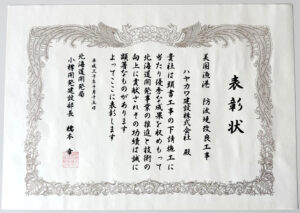 表彰状
美国漁港 防波堤改良工事
ハヤカワ建設株式会社 殿
貴社は頭書工事の下請施工に
当たり優秀な成果を収めもって
北海道開発事業の推進と技術の
向上に貢献されその功績は誠に
顕著なものがあります
よってここに表彰します
平成三十年十月十五日
北海道開発局
小樽開発建設部長 橋本 幸